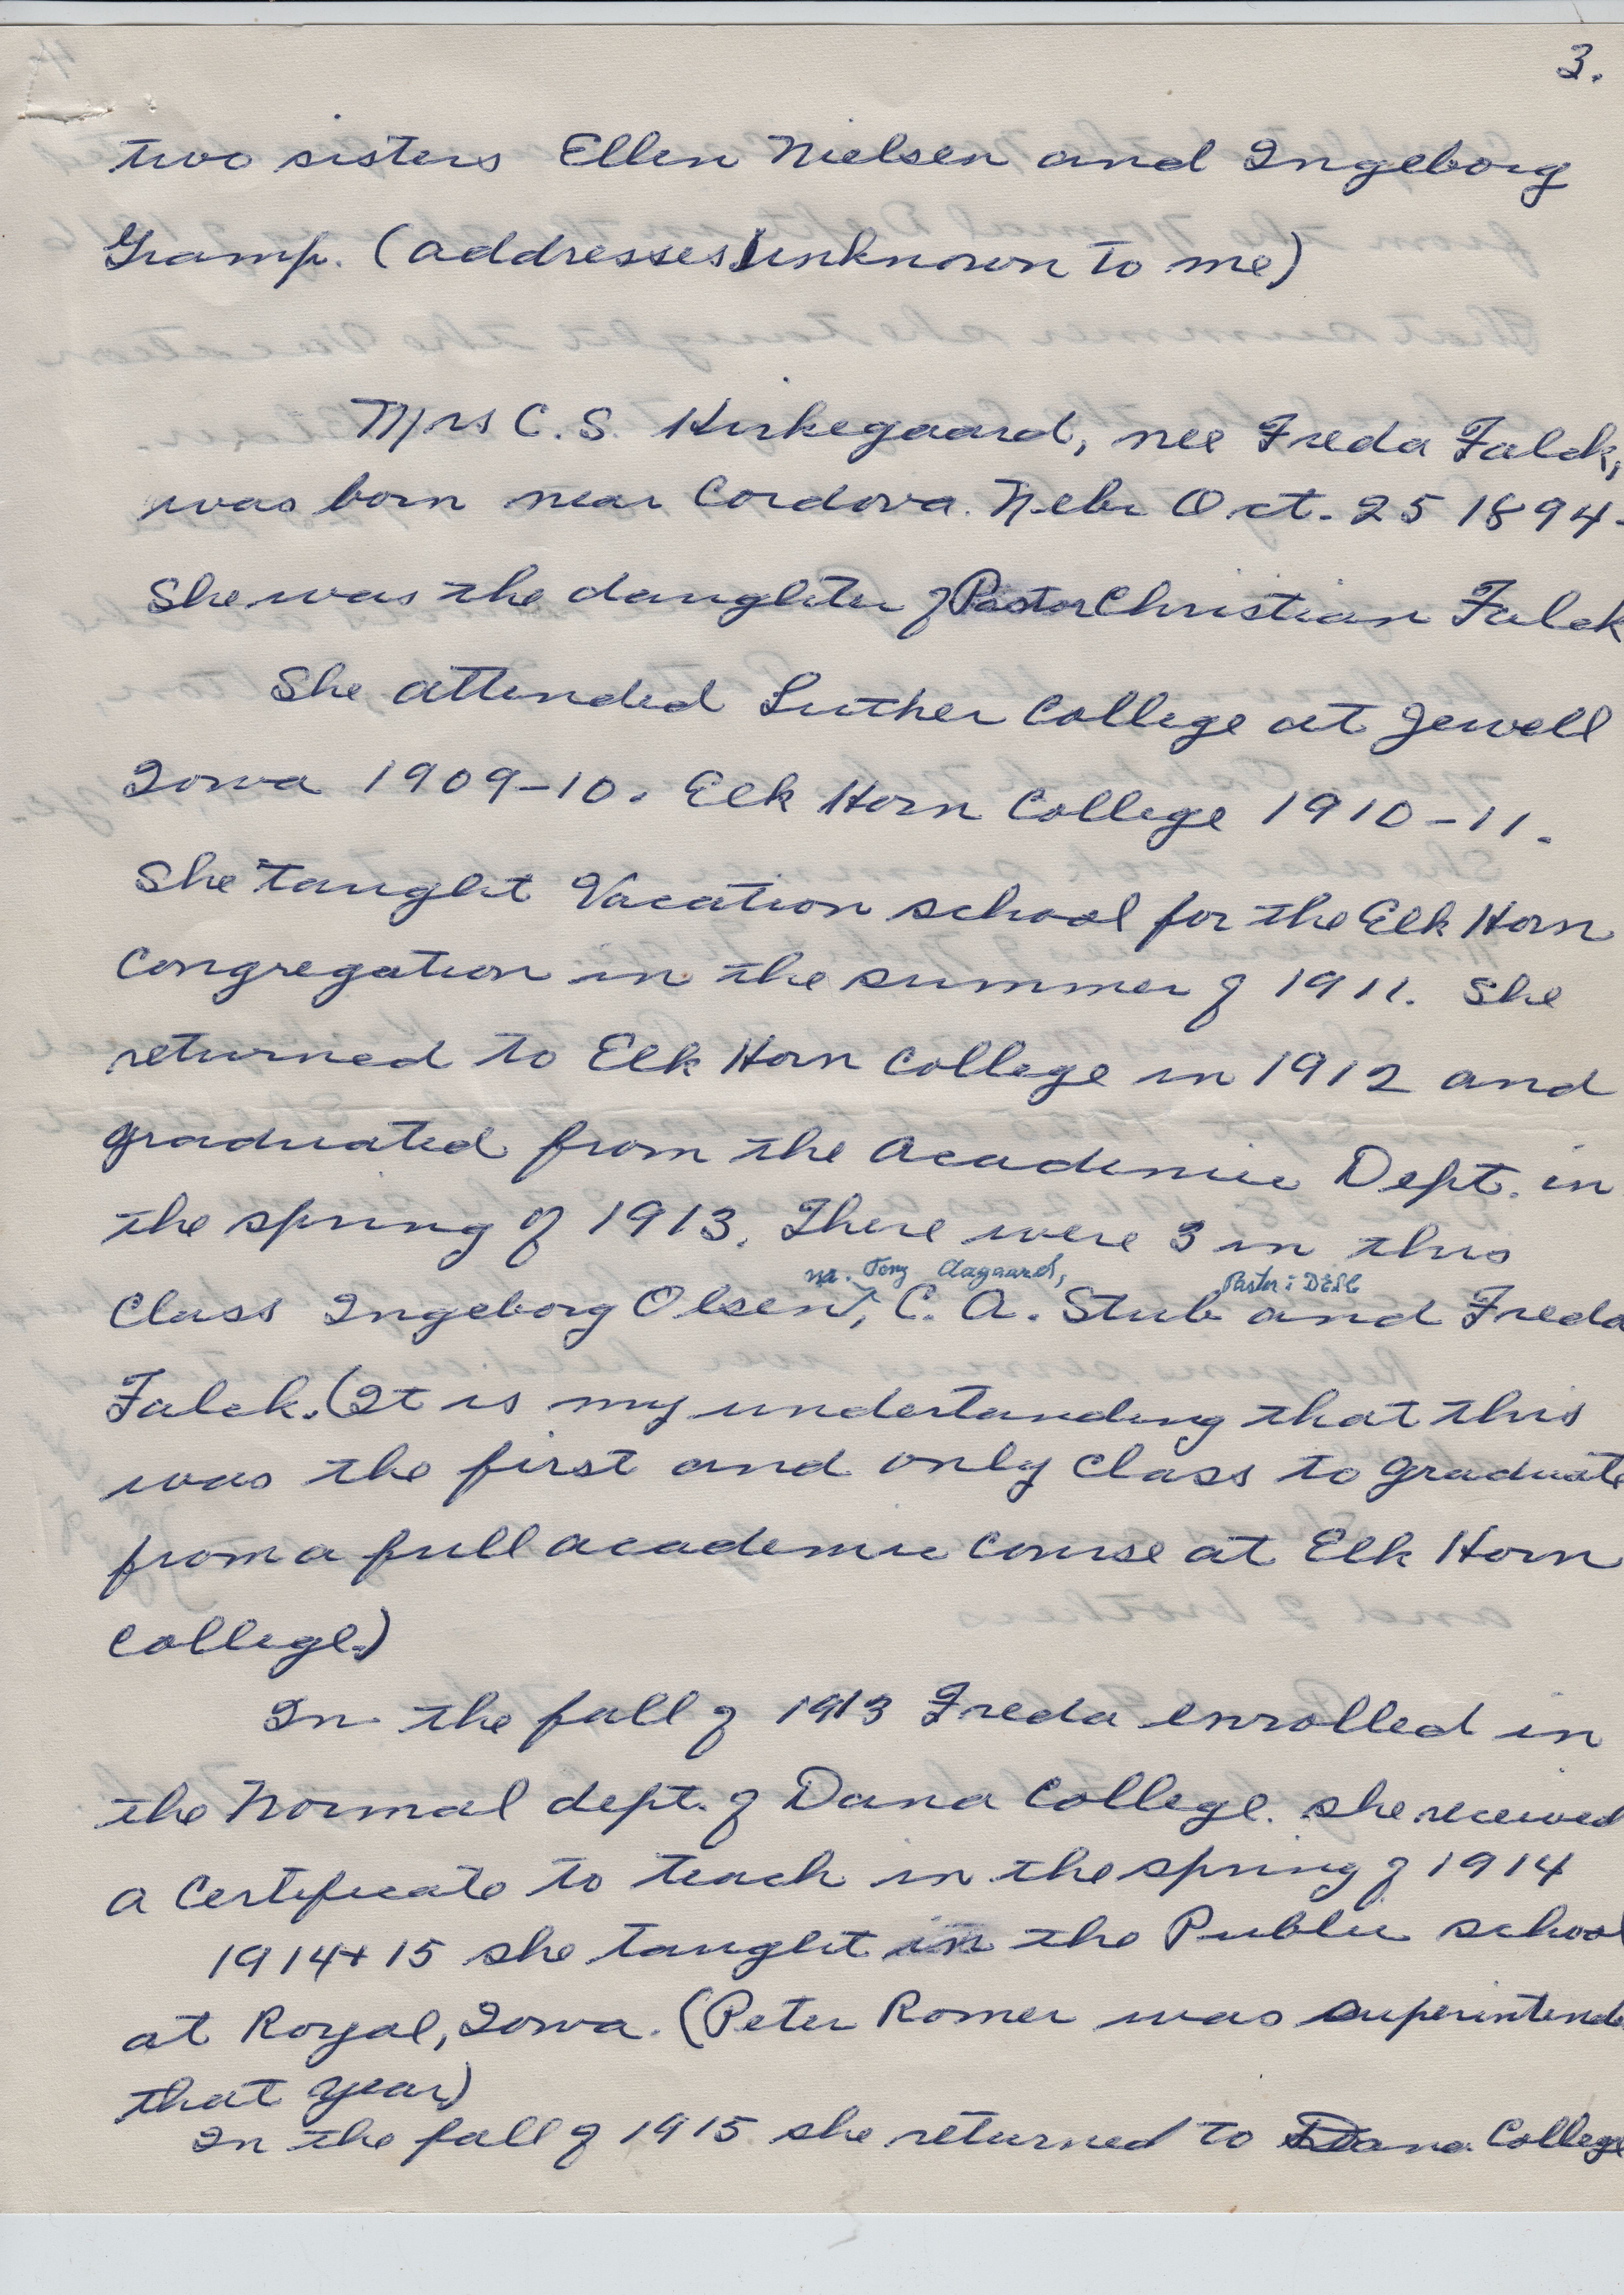 3.
two sisters Ellen Nielsen and Ingeborg
Gramp. (addresses unknown to me)
Mrs C. S. Kirkegaard, nee Freda Falck,
was born near Cordova. Nebr Oct. 25 1894.
She was the daughter of Pastor Christian Falck
She attended Luther College at Jewell
Iowa 1909-10. Elk Horn College 1910-11.
She taught Vacation school for the Elk Horn
Congregation in the summer of 1911. She
returned to Elk Horn College in 1912 and
graduated from the Academic Dept. in
the spring of 1913. There were 3 in this
Tony Aagaard, Pastor i DELC
Class Ingeborg Olsen, C. A. Stub and Freda
Falck. (It is my understanding that this
was the first and only Class to graduate
from a full academic course at Elk Horn
College.)
In the fall of 1913 Freda enrolled in
the Normal dept. of Dana College. She received
a Certificate to teach in the spring of 1914
1914+15 she taught in the Public school
at Royal, Iowa. (Peter Romer was superintend
that year)
In the fall of 1915 she returned to Dana College